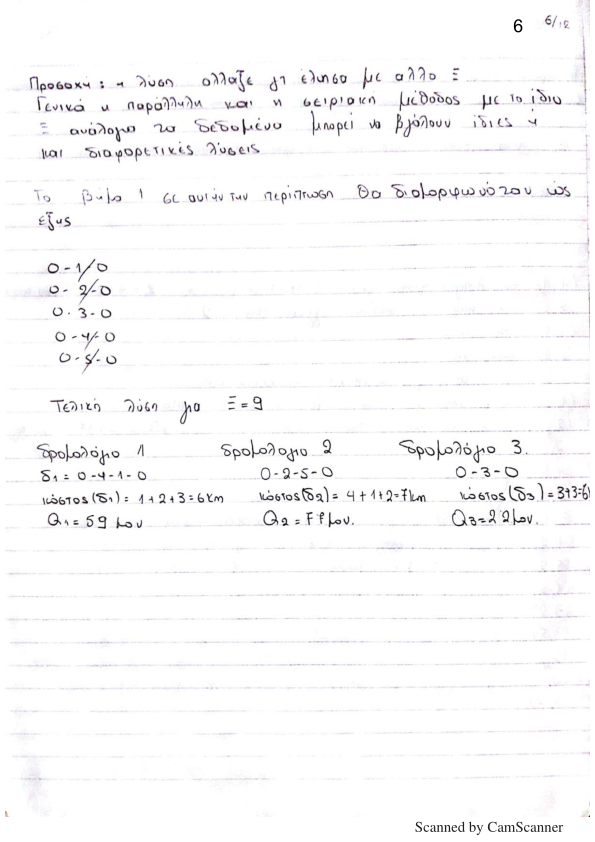 6 6/12
Προσοχή : η λύση αλλαξε γτ έλυσα με αλλο Ξ
Γενικά η παράλληλη και η σειριακή μέθοδος με το ίδιο
Ξ ανάλογα τα δεδομένα μπορεί να βγάλουν ίδιες η
και διαφορετικές λύσεις
Το βημα 1 σε αυτήν την περίπτωση θα διαμορφωνόταν ως
εξης
0-1/0
0-2-0
0-3-0
0-4-0
0-5-0
Τελική λύση για Ξ=9
δρομολόγιο 1 δρομολογιο 2 δρομολόγιο 3.
δ1 = 0-4-1-0 0-2-5-0 0-3-0
κόστος(δ1) = 1+2+3=6km κόστος(δ2) = 4+1+2=7km κόστος(δ3) = 3+3=6k
Q1 = 59 μον Q2 = 77 μον. Q3=22μον.
Scanned by CamScanner